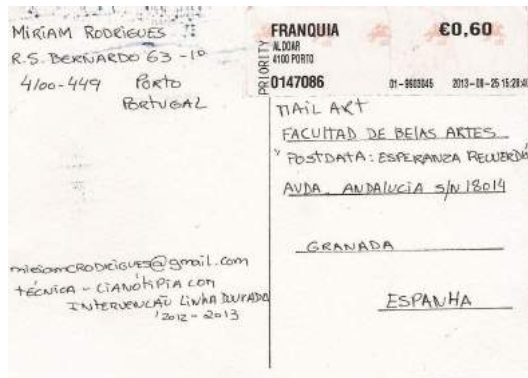 MIRIAM RODRIGUES
R.S. BERNARDO 63 - 1º
4100-449 PORTO
PORTUGAL
miriamcRODRIGUES@gmail.com
TÉCNICA - CIANOTIPIA COM
INTERVENÇÃO LINHA DOURADA
2012 - 2013
PRIORITY
FRANQUIA €0,60
ALDOAR
4100 PORTO
0147086 01-9603045 2013-08-26
MAIL ART
FACULTAD DE BELAS ARTES
"POSTDATA: ESPERANZA RECUERDO
AVDA. ANDALUCIA S/N 18014
GRANADA
ESPANHA